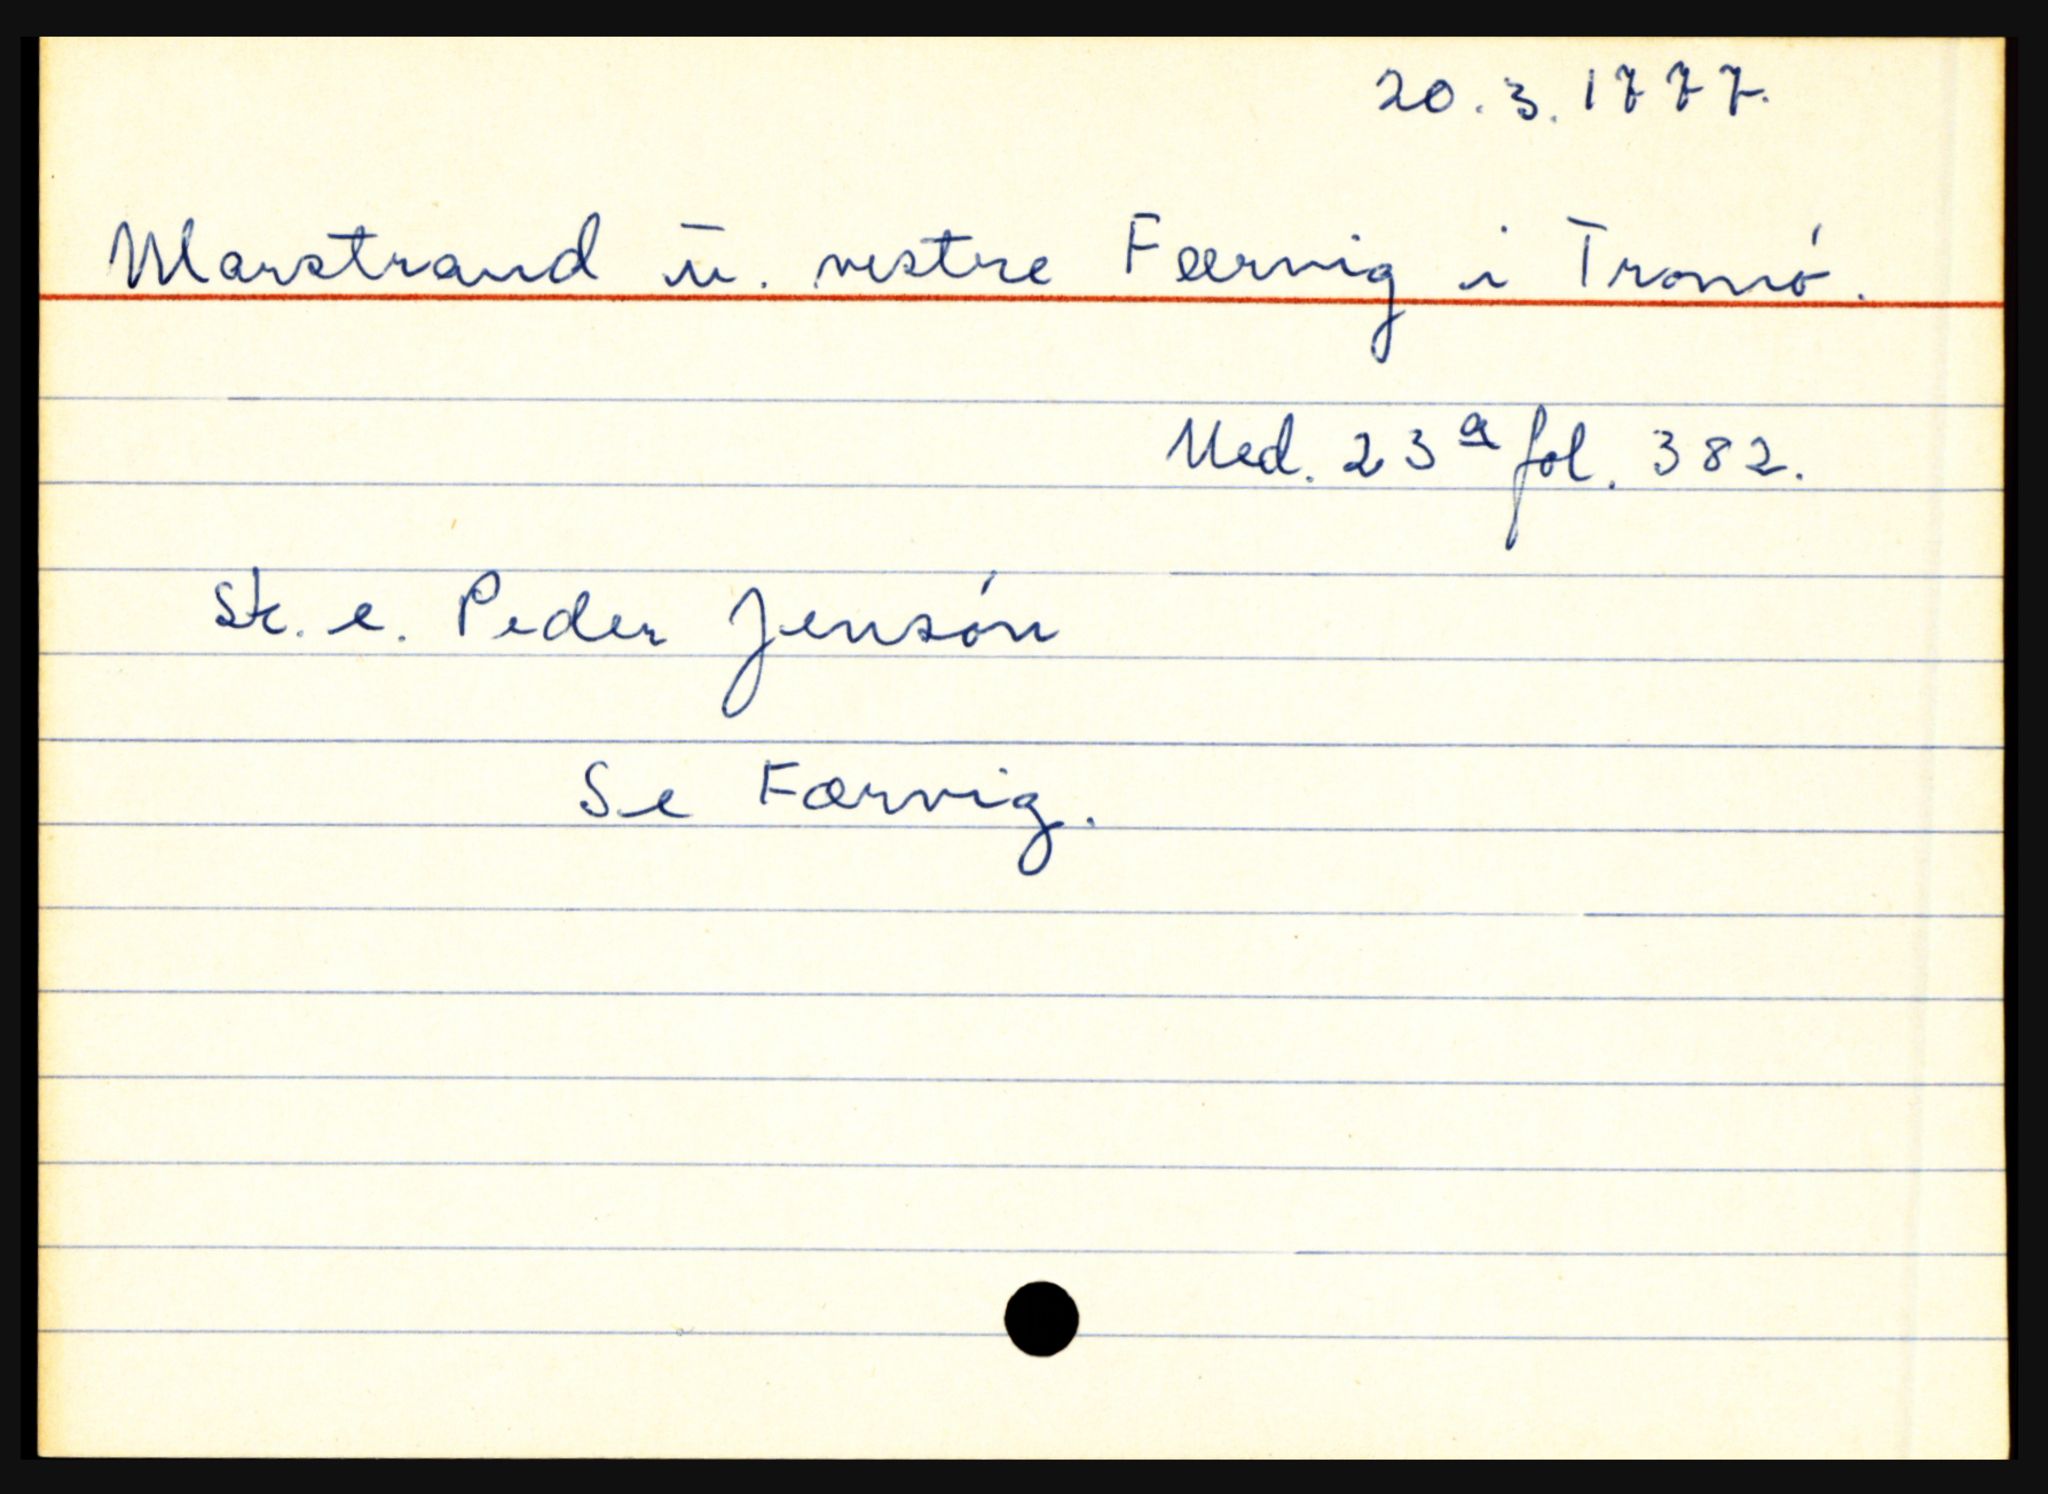 20.3.1777.
Marstrand u. vestre Færvig i Tromó.
Ned. 23a fol. 382.
Sk. e. Peder Jensón
Se Færvig.